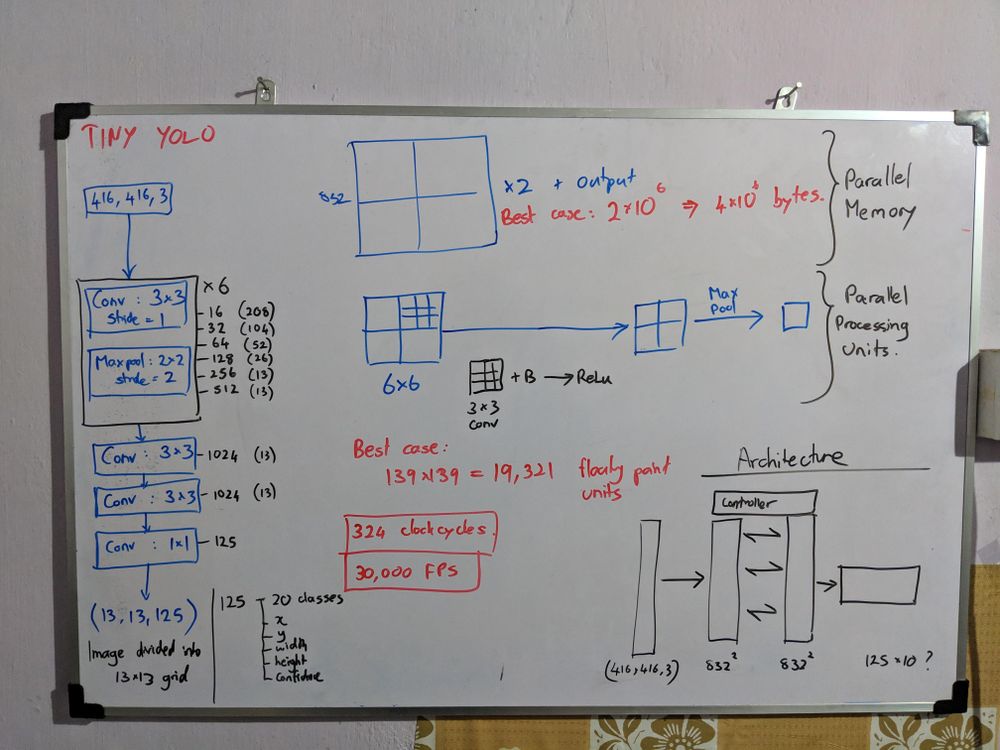 TINY YOLO
416, 416, 3
Conv : 3×3
stride = 1
Maxpool : 2×2
stride = 2
×6
16 (208)
32 (104)
64 (52)
128 (26)
256 (13)
512 (13)
Conv : 3×3
1024 (13)
Conv : 3×3
1024 (13)
Conv : 1×1
125
(13, 13, 125)
Image divided into
13×13 grid
125
20 classes
x
y
width
height
832
×2 + output
Best case: 2*10⁶ ⇒ 4*10⁶ bytes.
Parallel
Memory
6×6
Max
Pool
3×3
Conv
+ B → ReLu
Parallel
Processing
Units.
Best case:
139×139 = 19,321
point
units
324 clockcycles.
30,000 FPS
Architecture
Controller
(416, 416, 3)
832²
832²
125×10 ?